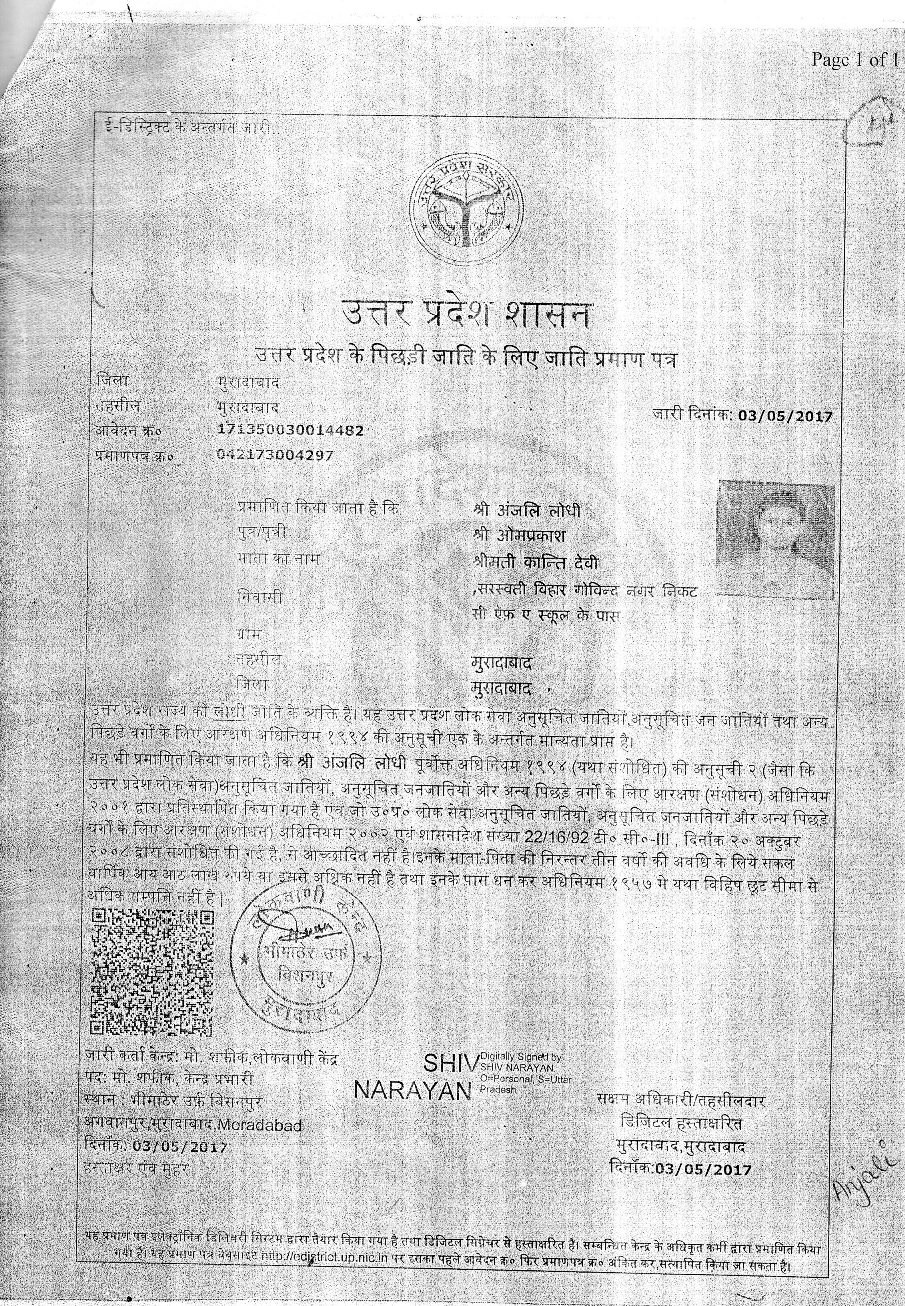 Page 1 of 1
ई-डिस्ट्रिक्ट के अन्तर्गत जारी..
उत्तर प्रदेश सरकार
उत्तर प्रदेश शासन
उत्तर प्रदेश के पिछड़ी जाति के लिए जाति प्रमाण पत्र
जिला मुरादाबाद
तहसील मुरादाबाद
जारी दिनांक: 03/05/2017
आवेदन क्र० 171350030014482
प्रमाणपत्र क्र० 042173004297
प्रमाणित किया जाता है कि श्री अंजलि लोधी
पुत्र/पुत्री श्री ओमप्रकाश
माता का नाम श्रीमती कान्ति देवी
निवासी ,सरस्वती विहार गोविन्द नगर निकट
सी ऐफ़ ए स्कूल के पास
ग्राम
तहसील मुरादाबाद
जिला मुरादाबाद
उत्तर प्रदेश राज्य की लोधी जाति के व्यक्ति हैं। यह उत्तर प्रदेश लोक सेवा अनुसूचित जातियों,अनुसूचित जन जातियों तथा अन्य
पिछड़े वर्गों के लिए आरक्षण अधिनियम १९९४ की अनुसूची एक के अन्तर्गत मान्यता प्राप्त है।
यह भी प्रमाणित किया जाता है कि श्री अंजलि लोधी पूर्वोक्त अधिनियम १९९४ (यथा संशोधित) की अनुसूची २ (जैसा कि
उत्तर प्रदेश लोक सेवा)अनुसूचित जातियों, अनुसूचित जनजातियों और अन्य पिछड़े वर्गों के लिए आरक्षण (संशोधन) अधिनियम
२००१ द्वारा प्रतिस्थापित किया गया है एवं जो उ०प्र० लोक सेवा,अनुसूचित जातियों, अनुसूचित जनजातियों और अन्य पिछड़े
वर्गों के लिए आरक्षण (संशोधन) अधिनियम २००२ एवं शासनादेश संख्या 22/16/92 टी० सी०-III , दिनाँक २० अक्टुबर
२००८ द्वारा संशोधित की गई है, से आच्छादित नहीं है।इनके माता-पिता की निरन्तर तीन वर्षों की अवधि के लिये सकल
वार्षिक आय आठ लाख रुपये या इससे अधिक नहीं है तथा इनके पास धन कर अधिनियम १९५७ में यथा विहिप छूट सीमा से
अधिक सम्पत्ति नहीं है |
लोकवाणी केन्द्र
भीमाठेर उर्फ
बिसनपुर
मुरादाबाद
जारी कर्ता केन्द्र: मो. शफीक,लोकवाणी केंद्र
पद: मो. शफीक, केन्द्र प्रभारी
स्थान : भीमाठेर उर्फ़ बिसनपुर
अगवानपुर,मुरादाबाद,Moradabad
दिनाँक: 03/05/2017
हस्ताक्षर एवं मुहर
SHIV NARAYAN
Digitally Signed by
SHIV NARAYAN
O=Personal, S=Uttar
Pradesh
सक्षम अधिकारी/तहसीलदार
डिजिटल हस्ताक्षरित
मुरादाबाद,मुरादाबाद
दिनाँक:03/05/2017
Anjali
यह प्रमाण पत्र इलेक्ट्रॉनिक डिलिवरी सिस्टम द्वारा तैयार किया गया है तथा डिजिटल सिग्नेचर से हस्ताक्षरित है। सम्बन्धित केन्द्र के अधिकृत कर्मी द्वारा प्रमाणित किया
गया है। यह प्रमाण पत्र वेबसाइट http://edistrict.up.nic.in पर इसका पहले आवेदन क्र०, फिर प्रमाणपत्र क्र० अंकित कर,सत्यापित किया जा सकता है।